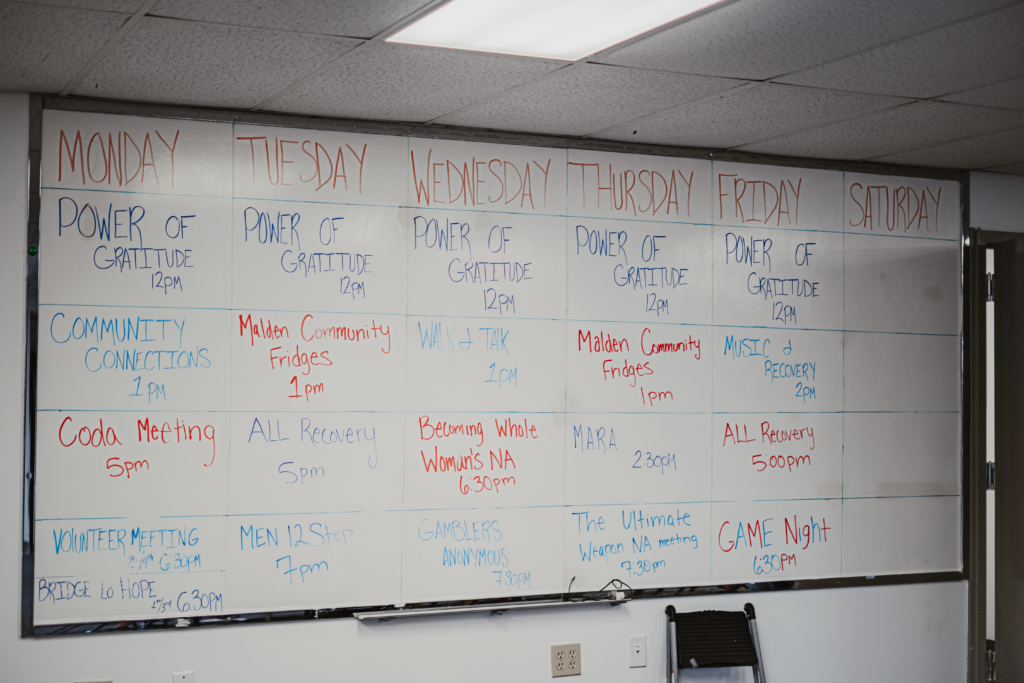 MONDAY TUESDAY WEDNESDAY THURSDAY FRIDAY SATURDAY
POWER OF
GRATITUDE
12PM
POWER OF
GRATITUDE
12PM
POWER OF
GRATITUDE
12PM
POWER OF
GRATITUDE
12PM
POWER OF
GRATITUDE
12PM
COMMUNITY
CONNECTIONS
1PM
Malden Community
Fridges
1pm
WALK & TALK
1PM
Malden Community
Fridges
1pm
MUSIC &
RECOVERY
2PM
Coda Meeting
5pm
ALL Recovery
5pm
Becoming Whole
Woman's NA
6:30pm
MARA
2:30PM
ALL Recovery
5:00pm
VOLUNTEER MEETING
6:30PM
BRIDGE to HOPE
6:30PM
MEN 12 Step
7pm
GAMBLERS
ANONYMOUS
7:30PM
The Ultimate
Weapon NA meeting
7:30pm
GAME Night
6:30PM